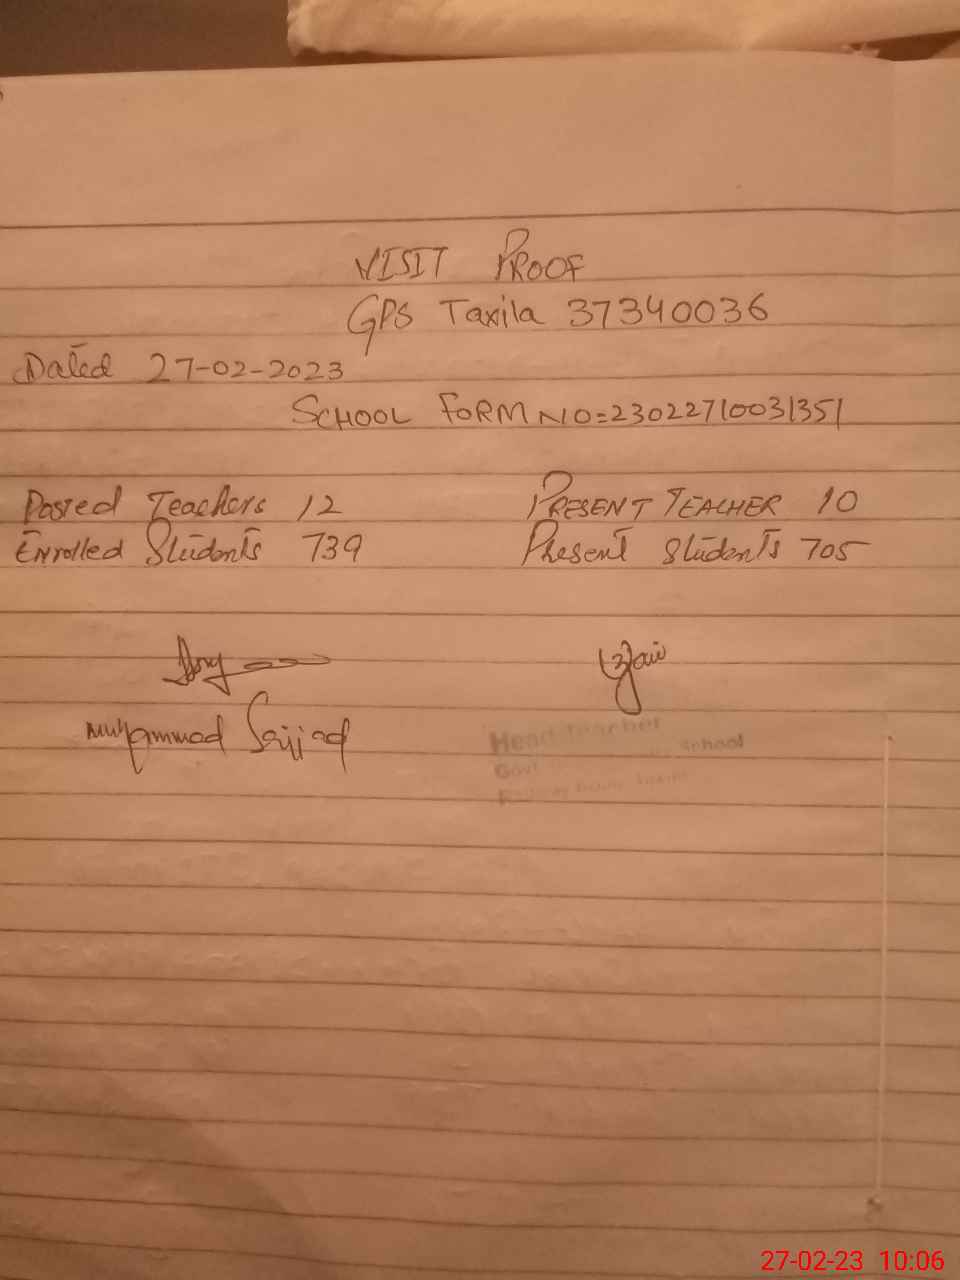 VISIT PROOF
GPS Taxila 37340036
Dated 27-02-2023
SCHOOL FORM NO=23022710031351
Posted Teachers 12 PRESENT TEACHER 10
Enrolled Students 739 Present Students 705
Muhammad Sajjad
Head Teacher
Govt School
27-02-23 10:06